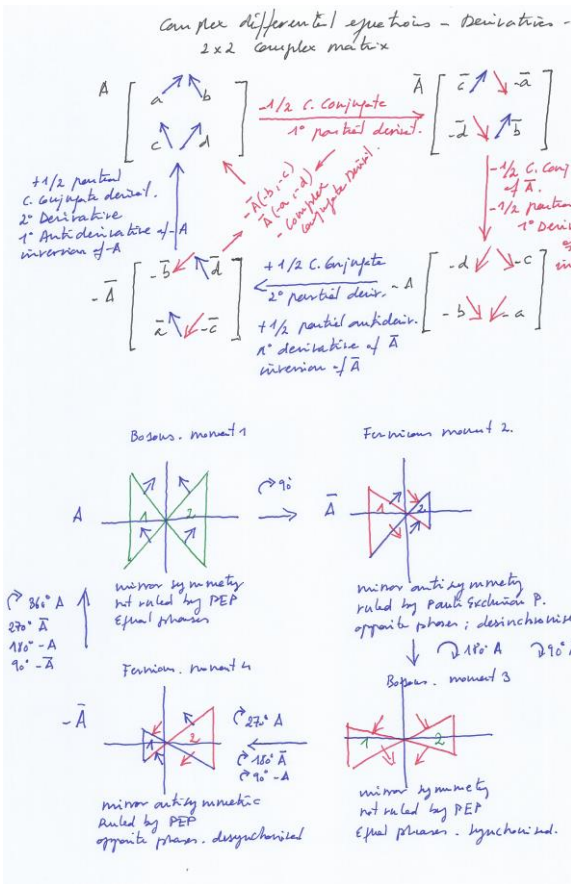 Complex differential equations - Derivatives -
2x2 complex matrix
A [ a b
c d ]
-1/2 C. Conjugate
1° partial derivat.
A̅ [ c̅ -a̅
-d̅ b̅ ]
+1/2 partial
C. Conjugate derivat.
2° Derivative
1° Antiderivative of -A
inversion of -A
-A̅(-b, -c)
A̅(-a, -d)
- Complex
Conjugate Derivat.
-1/2 C. Conj
of A̅.
-1/2 partial
1° Deriv
-A̅ [ -b̅ d̅
a̅ -c̅ ]
+1/2 C. Conjugate
2° partial deriv.
+1/2 partial antideriv.
derivative of A̅
inversion of A̅
-A [ -d -c
-b -a ]
Bosons. moment 1
A
1 2
mirror symmetry
not ruled by PEP
Equal phases
90°
Fermions moment 2.
A̅
1 2
mirror antisymmetry
ruled by Pauli Exclusion P.
opposite phases; desinchronise
360° A
270° A̅
180° -A
90° -A̅
180° A 90°
Fermions. moment 4
-A̅
1 2
mirror antisymmetric
Ruled by PEP
opposite phases. desynchronised
270° A
180° A̅
90° -A
Bosons. moment 3
1 2
mirror symmetry
not ruled by PEP
Equal phases. synchronised.